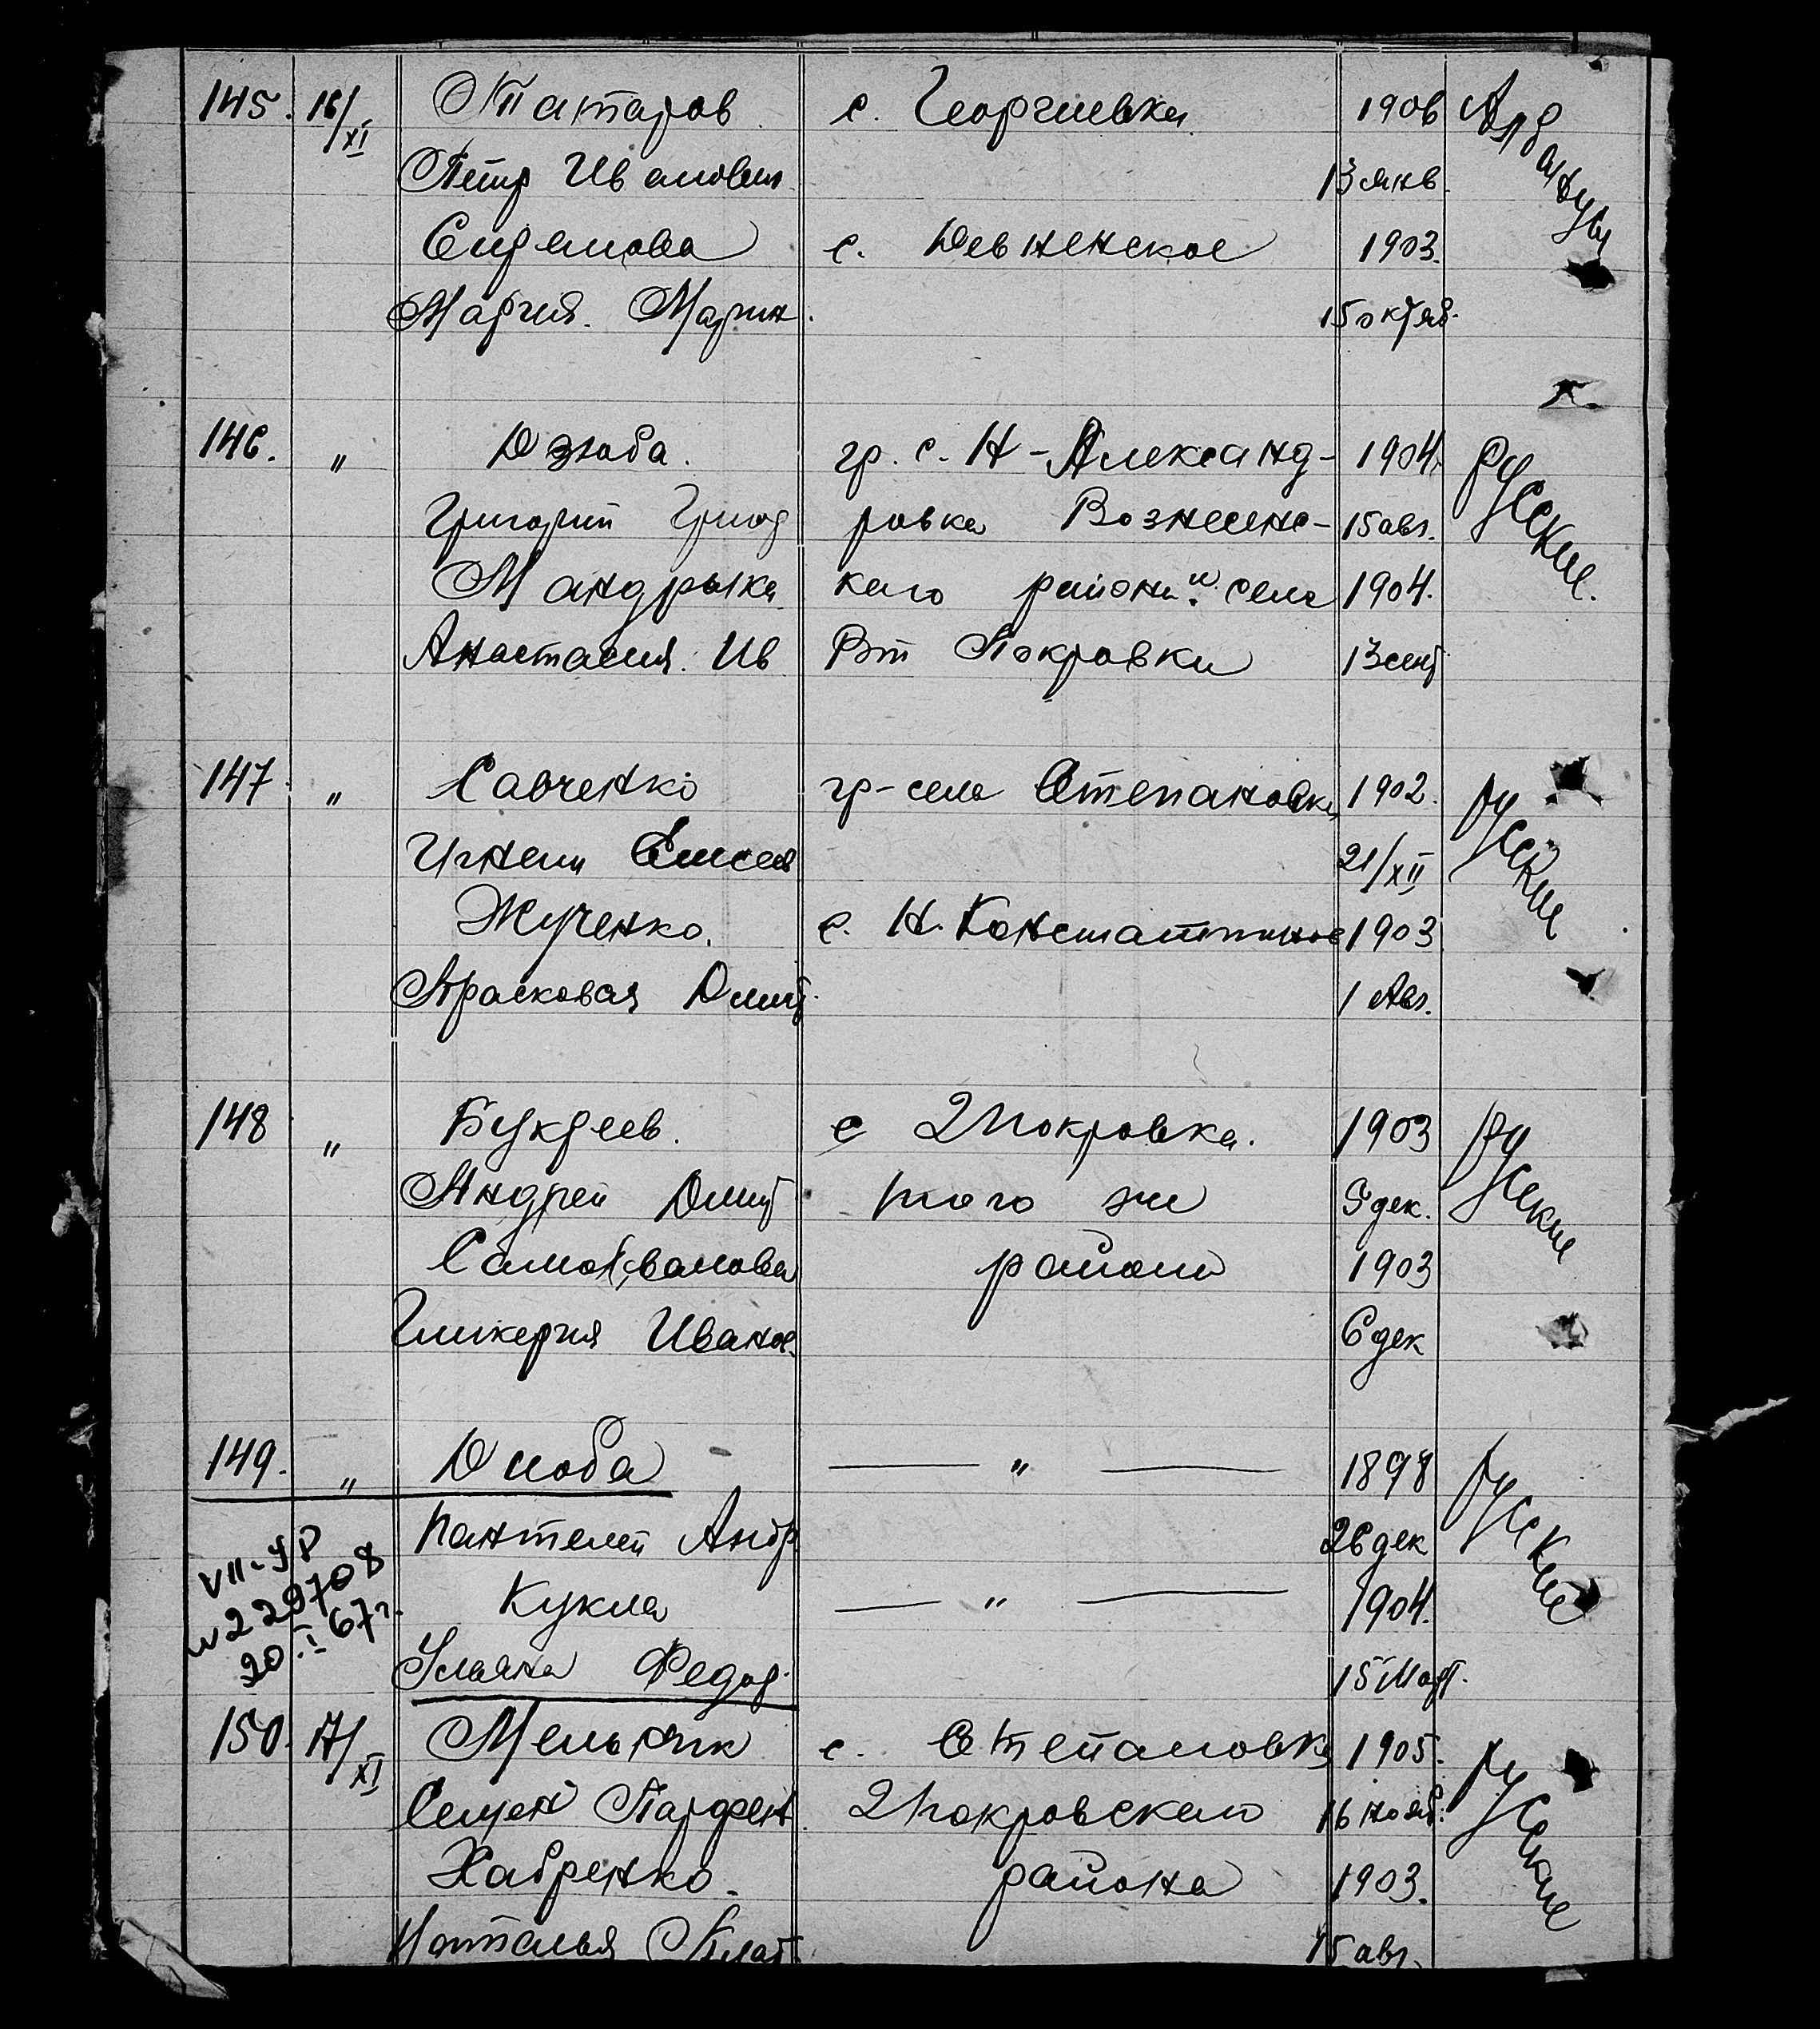 145. 16/XI Татаров с. Георгиевка 1906 Албанцы
Петр Иванович 13 янв.
с. Девненское 1903.
Мария. Марин. 15 октяб.
146. " Дзюба. гр. с. Н-Александ- 1904. Русские.
Григорий Григор ровка Вознесенс- 15 авг.
Мандрыка каго района и села 1904.
Анастасия. Ив Вт Покровки 13 сент
147. " Савченко гр-села Степановки 1902. Русские
Игнат Елисеев 21/XII
Жученко. с. Н. Констаттинов 1903
Прасковая Дмит. 1 Авг.
148 " Букреев. с 2 Покровка. 1903 Русские
Андрей Дмит того же 9 дек.
Самохвалова района 1903
Гликерия Иванов. 6 дек
149. " Дзюба — " — 1898 Русские
Пантелей Андр 26 дек
VII-УР
№ 229708
20.I 67г.
Кукла — " — 1904.
Ульяна Федор. 15 Март.
150. 17/XI Мельник с. Степановка 1905. Русские
Семен Парфен 2 Покровского 16 нояб.
Хабренко. района 1903.
Натталья Плат. 15 авг.